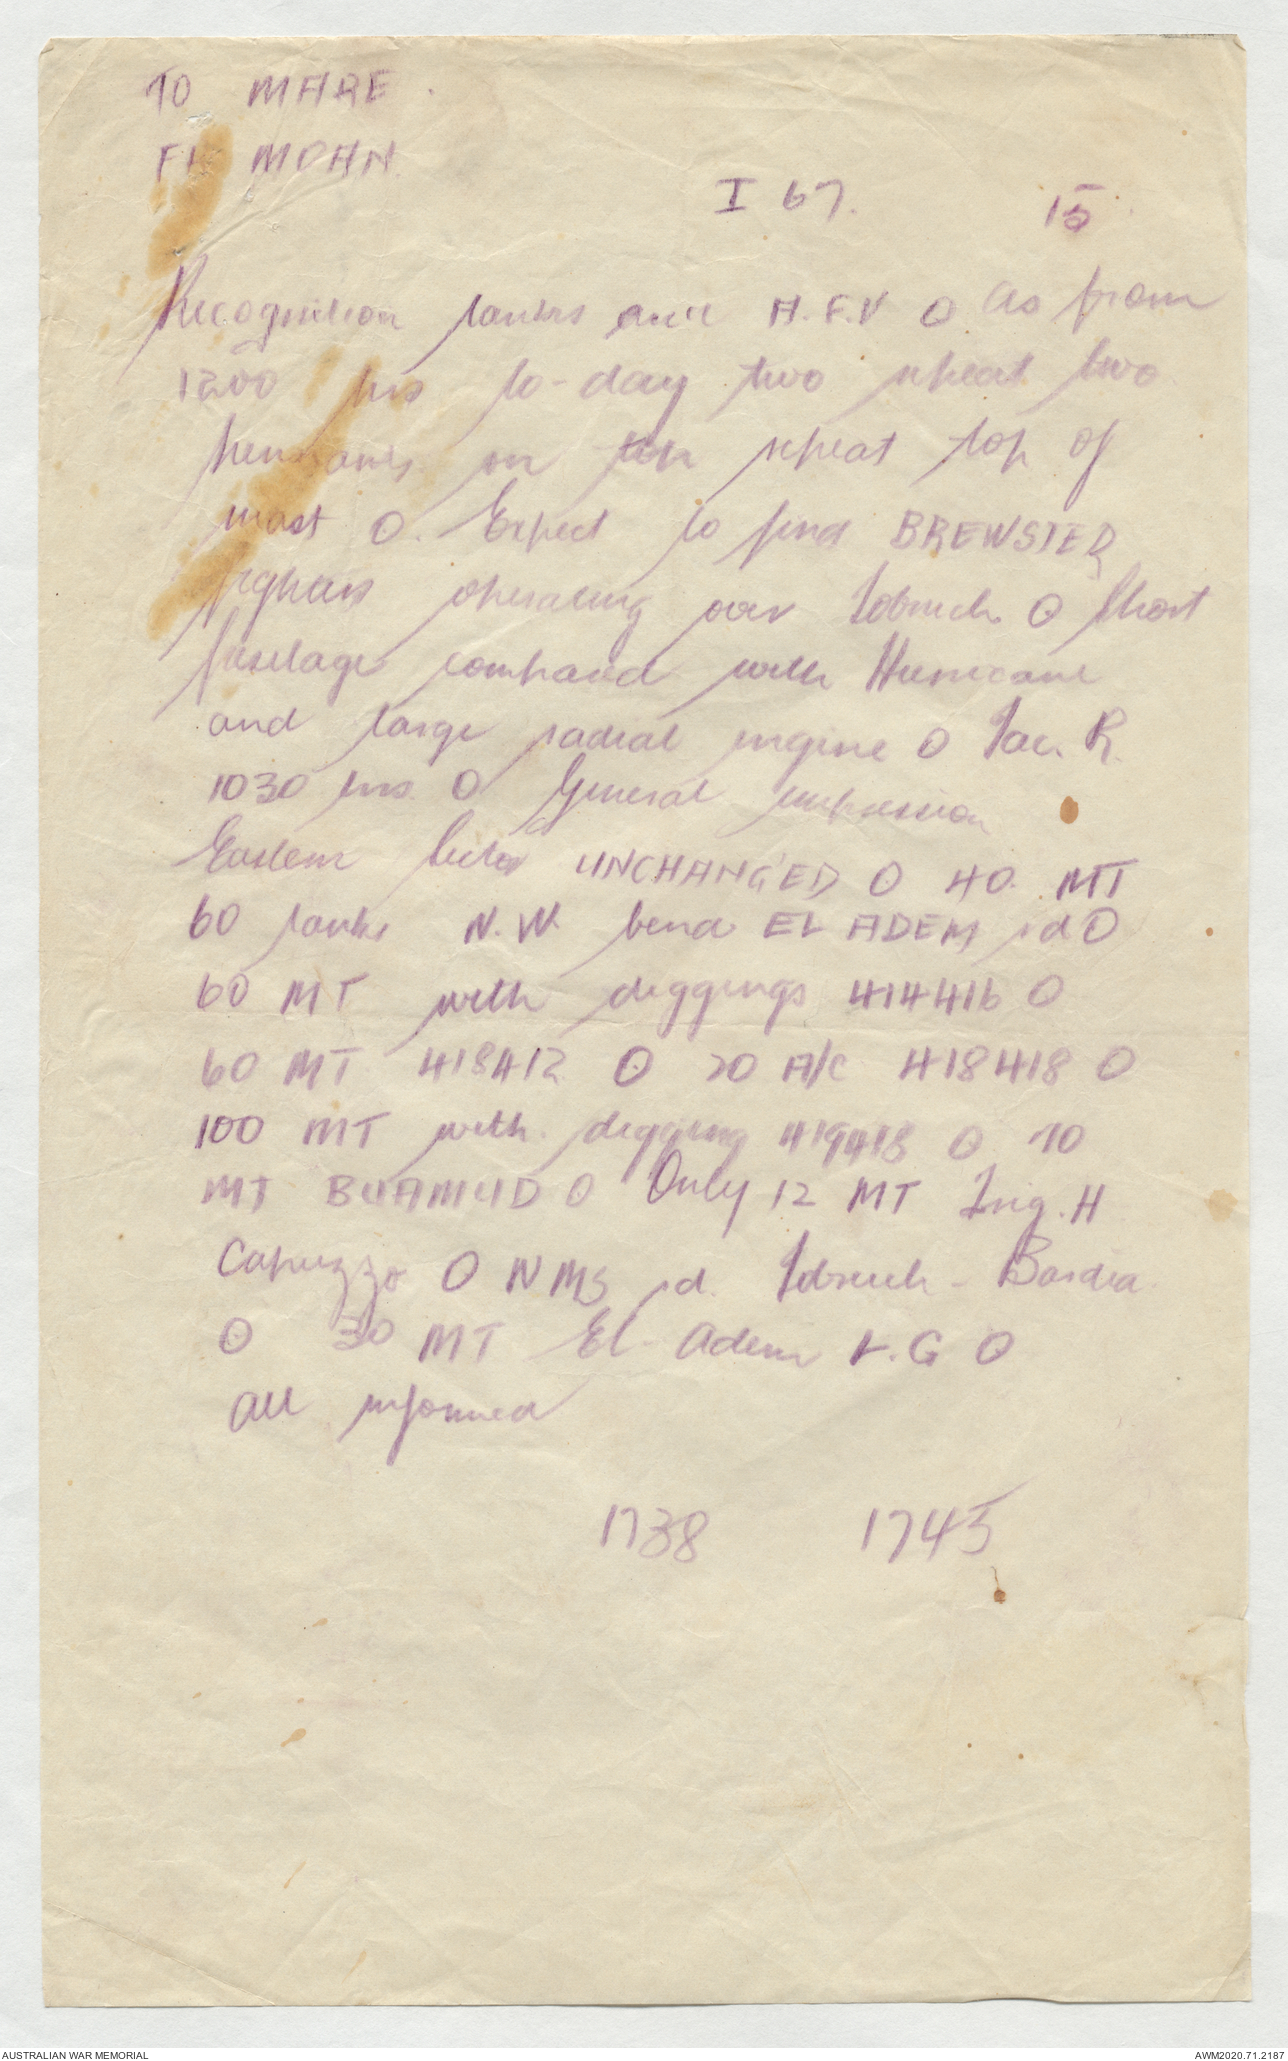 TO MARE.
FM MOAN.
I 67. 15
Recognition tanks and A.F.V O As from
1200 hrs to-day two repeat two
pennants on top repeat top of
mast O. Expect to find BREWSTER
fighters operating over Tobruch O Short
fuselage compared with Hurricane
and large radial engine O Tac. R.
1030 hrs. O General impression
Eastern Sector UNCHANGED O 40. MT
60 tanks N.W. bend EL ADEM rd O
60 MT with diggings 414416 O
60 MT 418412 O 20 A/C 418418 O
100 MT with digging 419418 O 10
MT BUAMUD O Only 12 MT Trig. H
Capuzzo O N MS rd. Tobruch - Bardia
O 30 MT El Adem L.G O
All informed
1738 1745
AUSTRALIAN WAR MEMORIAL
AWM2020.71.2187